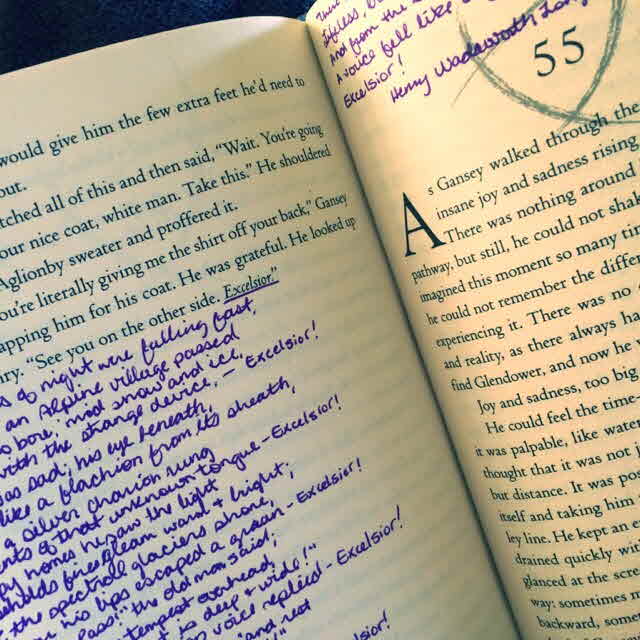 would give him the few extra feet he'd need to
out.
tched all of this and then said, "Wait. You're going
our nice coat, white man. Take this." He shouldered
Aglionby sweater and proffered it.
ou're literally giving me the shirt off your back," Gansey
apping him for his coat. He was grateful. He looked up
ry. "See you on the other side. Excelsior."
of night were falling fast,
an Alpine village passed
bore, 'mid snow and ice,
with the strange device, – "Excelsior!
was sad; his eye beneath,
like a falchion from its sheath,
a silver clarion rung
of that unknown tongue – Excelsior!
homes he saw the light
fires gleam warm & bright;
the spectral glaciers shone,
his lips escaped a groan – Excelsior!
Pass!" the old man said;
tempest overhead,
is deep & wide!"
voice replied – Excelsior!
and rest
Excelsior!
lifeless, b
And from the s
A voice fell like
Excelsior!
Henry Wadsworth Long
55
As Gansey walked through the
insane joy and sadness rising
There was nothing around
pathway, but still, he could not shak
imagined this moment so many tim
he could not remember the differ
experiencing it. There was no
and reality, as there always ha
find Glendower, and now he w
Joy and sadness, too big
He could feel the time-
it was palpable, like water
thought that it was not
but distance. It was po
itself and taking him
ley line. He kept an
drained quickly wi
glanced at the scre
way: sometimes m
backward, some